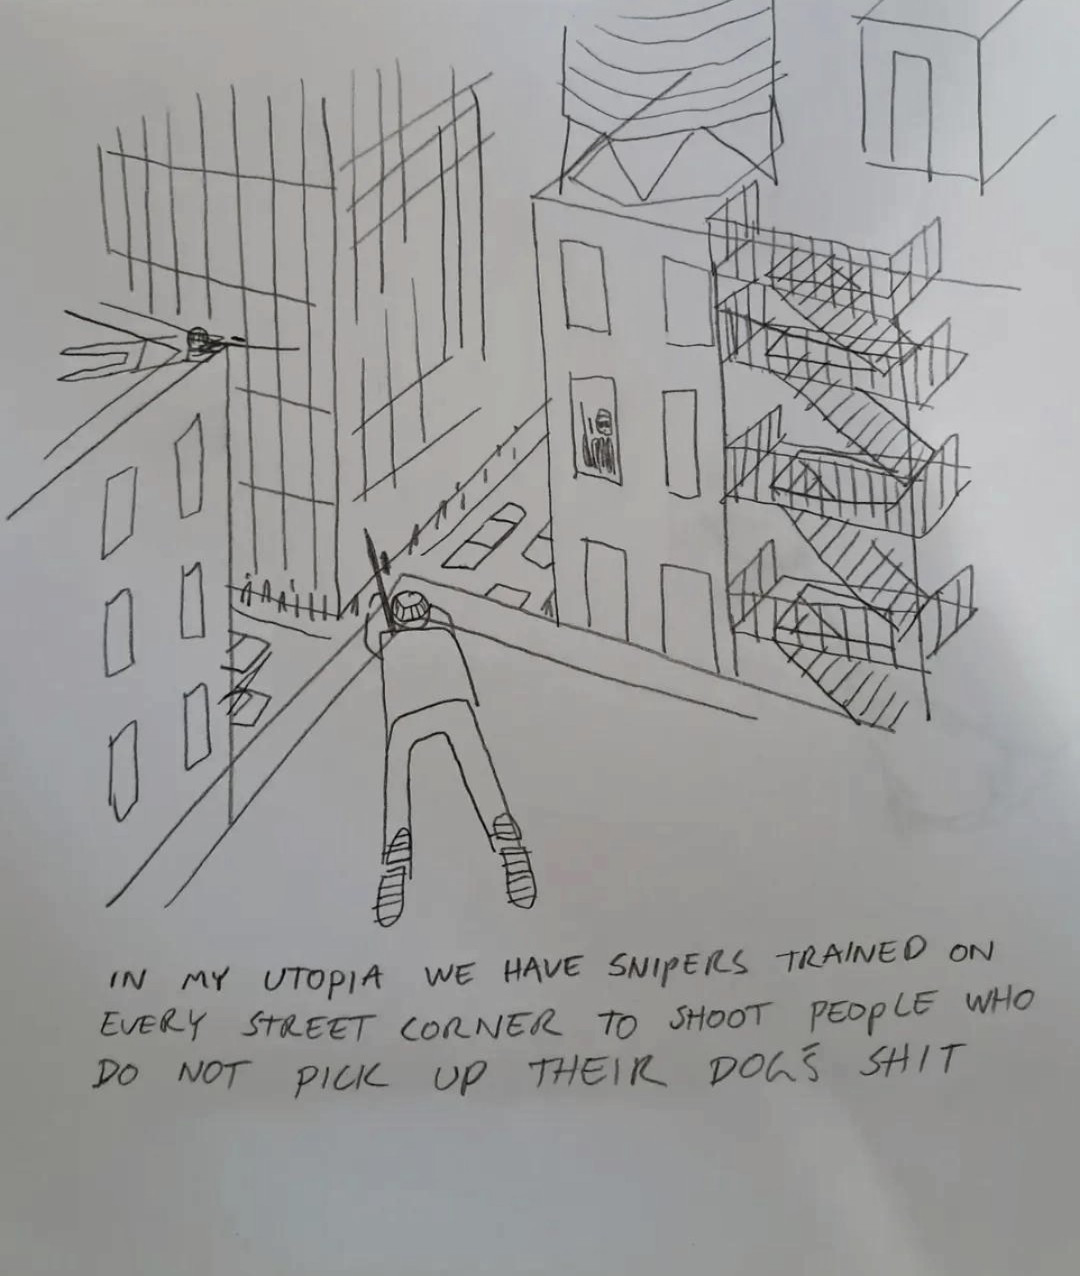 IN MY UTOPIA WE HAVE SNIPERS TRAINED ON
EVERY STREET CORNER TO SHOOT PEOPLE WHO
DO NOT PICK UP THEIR DOG'S SHIT